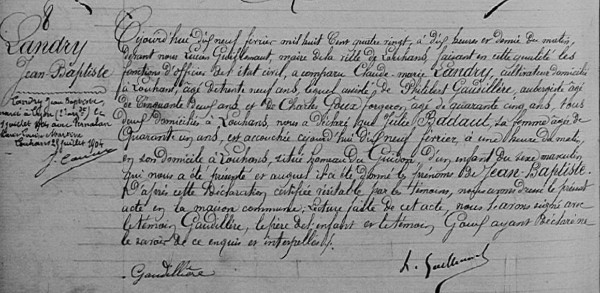 8
Landry
Jean Baptiste
Landry Jean Baptiste
marié à
juillet 1904 avec
Louhans 25 juillet 1904
Aujourd'hui dix neuf février mil huit Cent quatre vingt, à dix heures et demie du matin,
devant nous Lucien Guillemaut, maire de la ville de Louhans, faisant en cette qualité les
fonctions d'officier de l'état civil, a comparu Claude-marie Landry, cultivateur domicilié
à Louhans, âgé de trente neuf ans, lequel assisté de Philibert Gaudillère, aubergiste âgé
de Cinquante neuf ans, et de Charles Gauz forgeron, âgé de quarante cinq ans, tous
deux Domiciliés à Louhans, nous a Déclaré que Julie Badaut, sa femme âgée de
Quarante un ans, est accouchée cejourd'hui dix neuf février, à une heure du matin,
en son domicile à Louhans, situé hameau du Guidon, d'un enfant du sexe masculin
qui nous a été présenté et auquel il a été donné les prénoms de Jean-Baptiste.
D'après cette Déclaration certifiée véritable par les témoins, nous avons dressé le présent
acte en la maison commune; Lecture faite de cet acte, nous l'avons signé avec
le témoin Gaudillère, le père de l'enfant et le témoin Gauz ayant Déclaré ne
le savoir de ce enquis et interpellés.
Gaudillère
L. Guillemaut